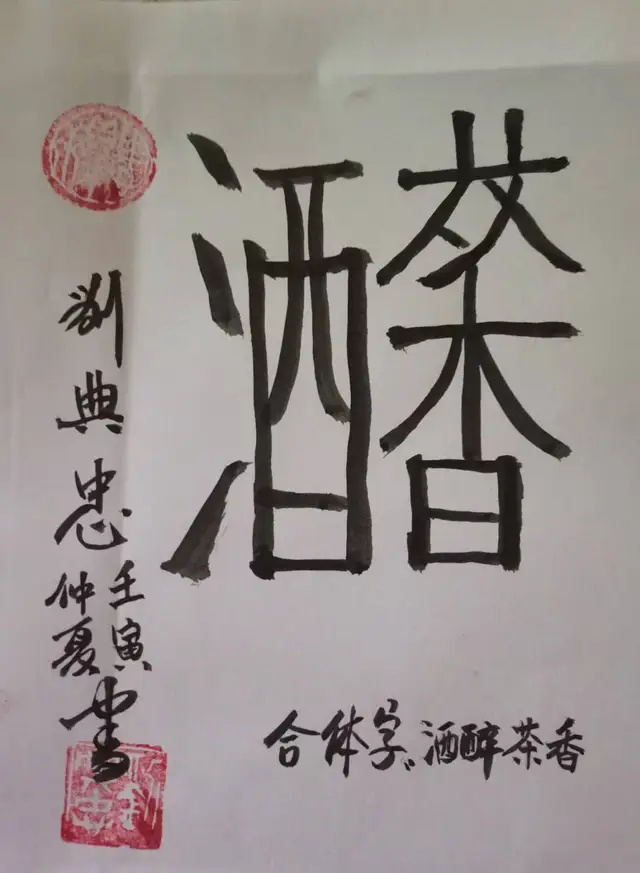 合体字:酒醉茶香
劉典忠
壬寅
仲夏
書